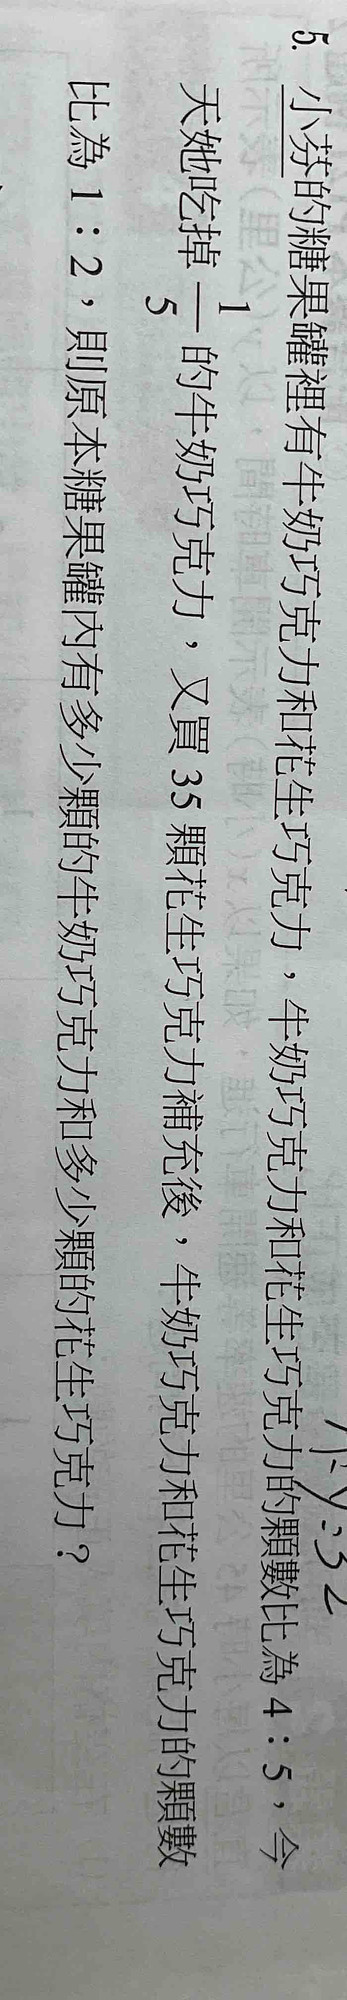 5. 小芬的糖果罐裡有牛奶巧克力和花生巧克力，牛奶巧克力和花生巧克力的顆數比為 4：5，今
天她吃掉 1/5 的牛奶巧克力，又買 35 顆花生巧克力補充後，牛奶巧克力和花生巧克力的顆數
比為 1：2，則原本糖果罐內有多少顆的牛奶巧克力和多少顆的花生巧克力？